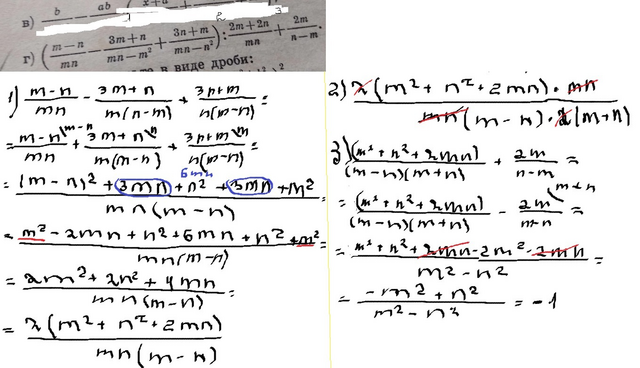 в) b ab x+a
г) ( (m−n)/(mn) − (3m+n)/(mn−m²) + (3n+m)/(mn−n²) ) : (2m+2n)/(mn) + 2m/(n−m)
в виде дроби:
1) (m−n)/(mn) − (3m+n)/(m(n−m)) + (3n+m)/(n(m−n)) =
= (m−n)/(mn) + (3m+n)/(m(m−n)) + (3n+m)/(n(m−n)) =
6mn
= ((m−n)² + 3mn + n² + 3mn + m²)/(mn(m−n)) =
= (m² − 2mn + n² + 6mn + n² + m²)/(mn(m−n)) =
= (2m² + 2n² + 4mn)/(mn(m−n)) =
= 2(m² + n² + 2mn)/(mn(m−n))
2) (2(m² + n² + 2mn) · mn)/(mn(m−n) · 2(m+n))
3) (m² + n² + 2mn)/((m−n)(m+n)) + 2m/(n−m) =
= (m² + n² + 2mn)/((m−n)(m+n)) − 2m/(m−n) =
= (m² + n² + 2mn − 2m² − 2mn)/(m² − n²) =
= (−m² + n²)/(m² − n²) = −1